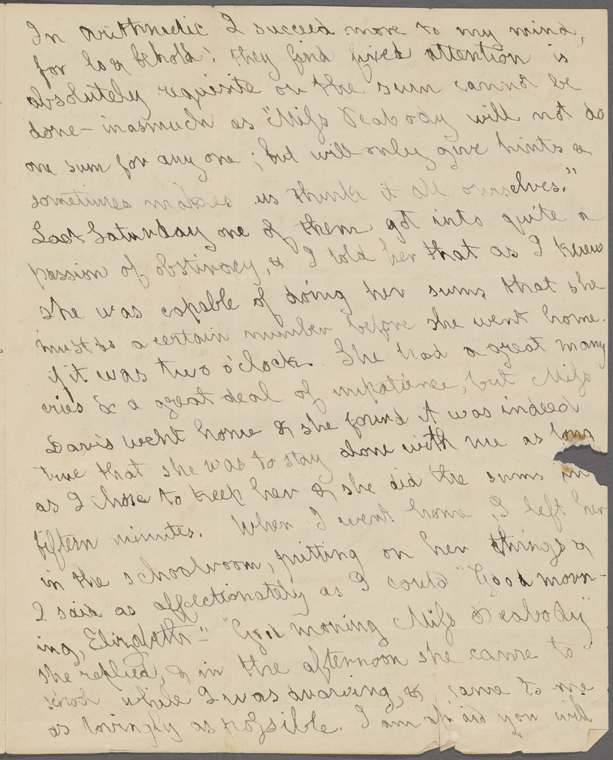 In arithmetic I succeed more to my mind,
for lo & behold! they find fixed attention is
absolutely requisite or the sum cannot be
done - inasmuch as "Miss Peabody will not do
one sum for any one; but will only give hints &
sometimes makes us think it all ourselves."
Last Saturday one of them got into quite a
passion of obstinacy, & I told her that as I knew
she was capable of doing her sums that she
must do a certain number before she went home.
if it was two o'clock. She had a great many
cries & a great deal of impatience, but Miss
Davis went home & she found it was indeed
true that she was to stay alone with me as long
as I chose to keep her & she did the sums in
fifteen minutes. When I went home, I left her
in the schoolroom, putting on her things &
I said as affectionately as I could "Good morn-
ing, Elizabeth" - "Good morning Miss Peabody"
she replied, & in the afternoon she came to
where I was drawing, & came to me
as lovingly as possible. I am afraid you will